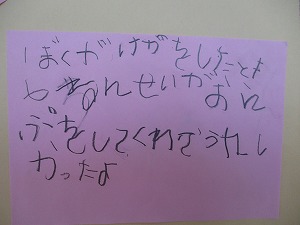 ぼくがけがをしたとき
せんせいがおん
ぶをしてくれてうれし
かったよ